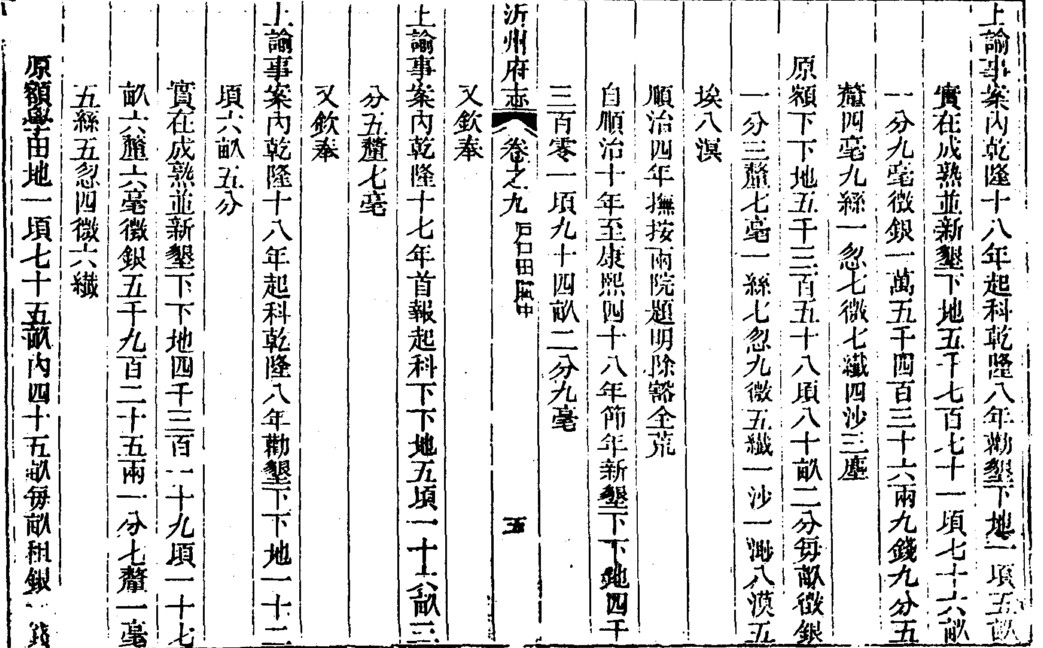 上諭事案內乾隆十八年起科乾隆八年勸墾下地一項五畝
實在成熟並新墾下地五千七百七十一頃七十六畝
一分九毫徵銀一萬五千四百三十六兩九錢九分五
釐四毫九絲一忽七微七纖四沙三塵
原額下下地五千三百五十八頃八十畝二分每畝徵銀
一分三釐七毫一絲七忽九微五纖一沙一渺八漠五
埃八溟
順治四年撫按兩院題明除豁全荒
自順治十年至康熙四十八年節年新墾下下地四千
三百零一頃九十四畝二分九毫
沂州府志 卷之九 戶口田賦中 五
又欽奉
上諭事案內乾隆十七年首報起科下下地五頃一十六畝三
分五釐七毫
又欽奉
上諭事案內乾隆十八年起科乾隆八年勸墾下下地一十二
頃六畝五分
實在成熟並新墾下下地四千三百一十九頃一十七
畝六釐六毫徵銀五千九百二十五兩一分七釐一毫
五絲五忽四微六纖
原額學田地一頃七十五畝內四十五畝每畝租銀一錢